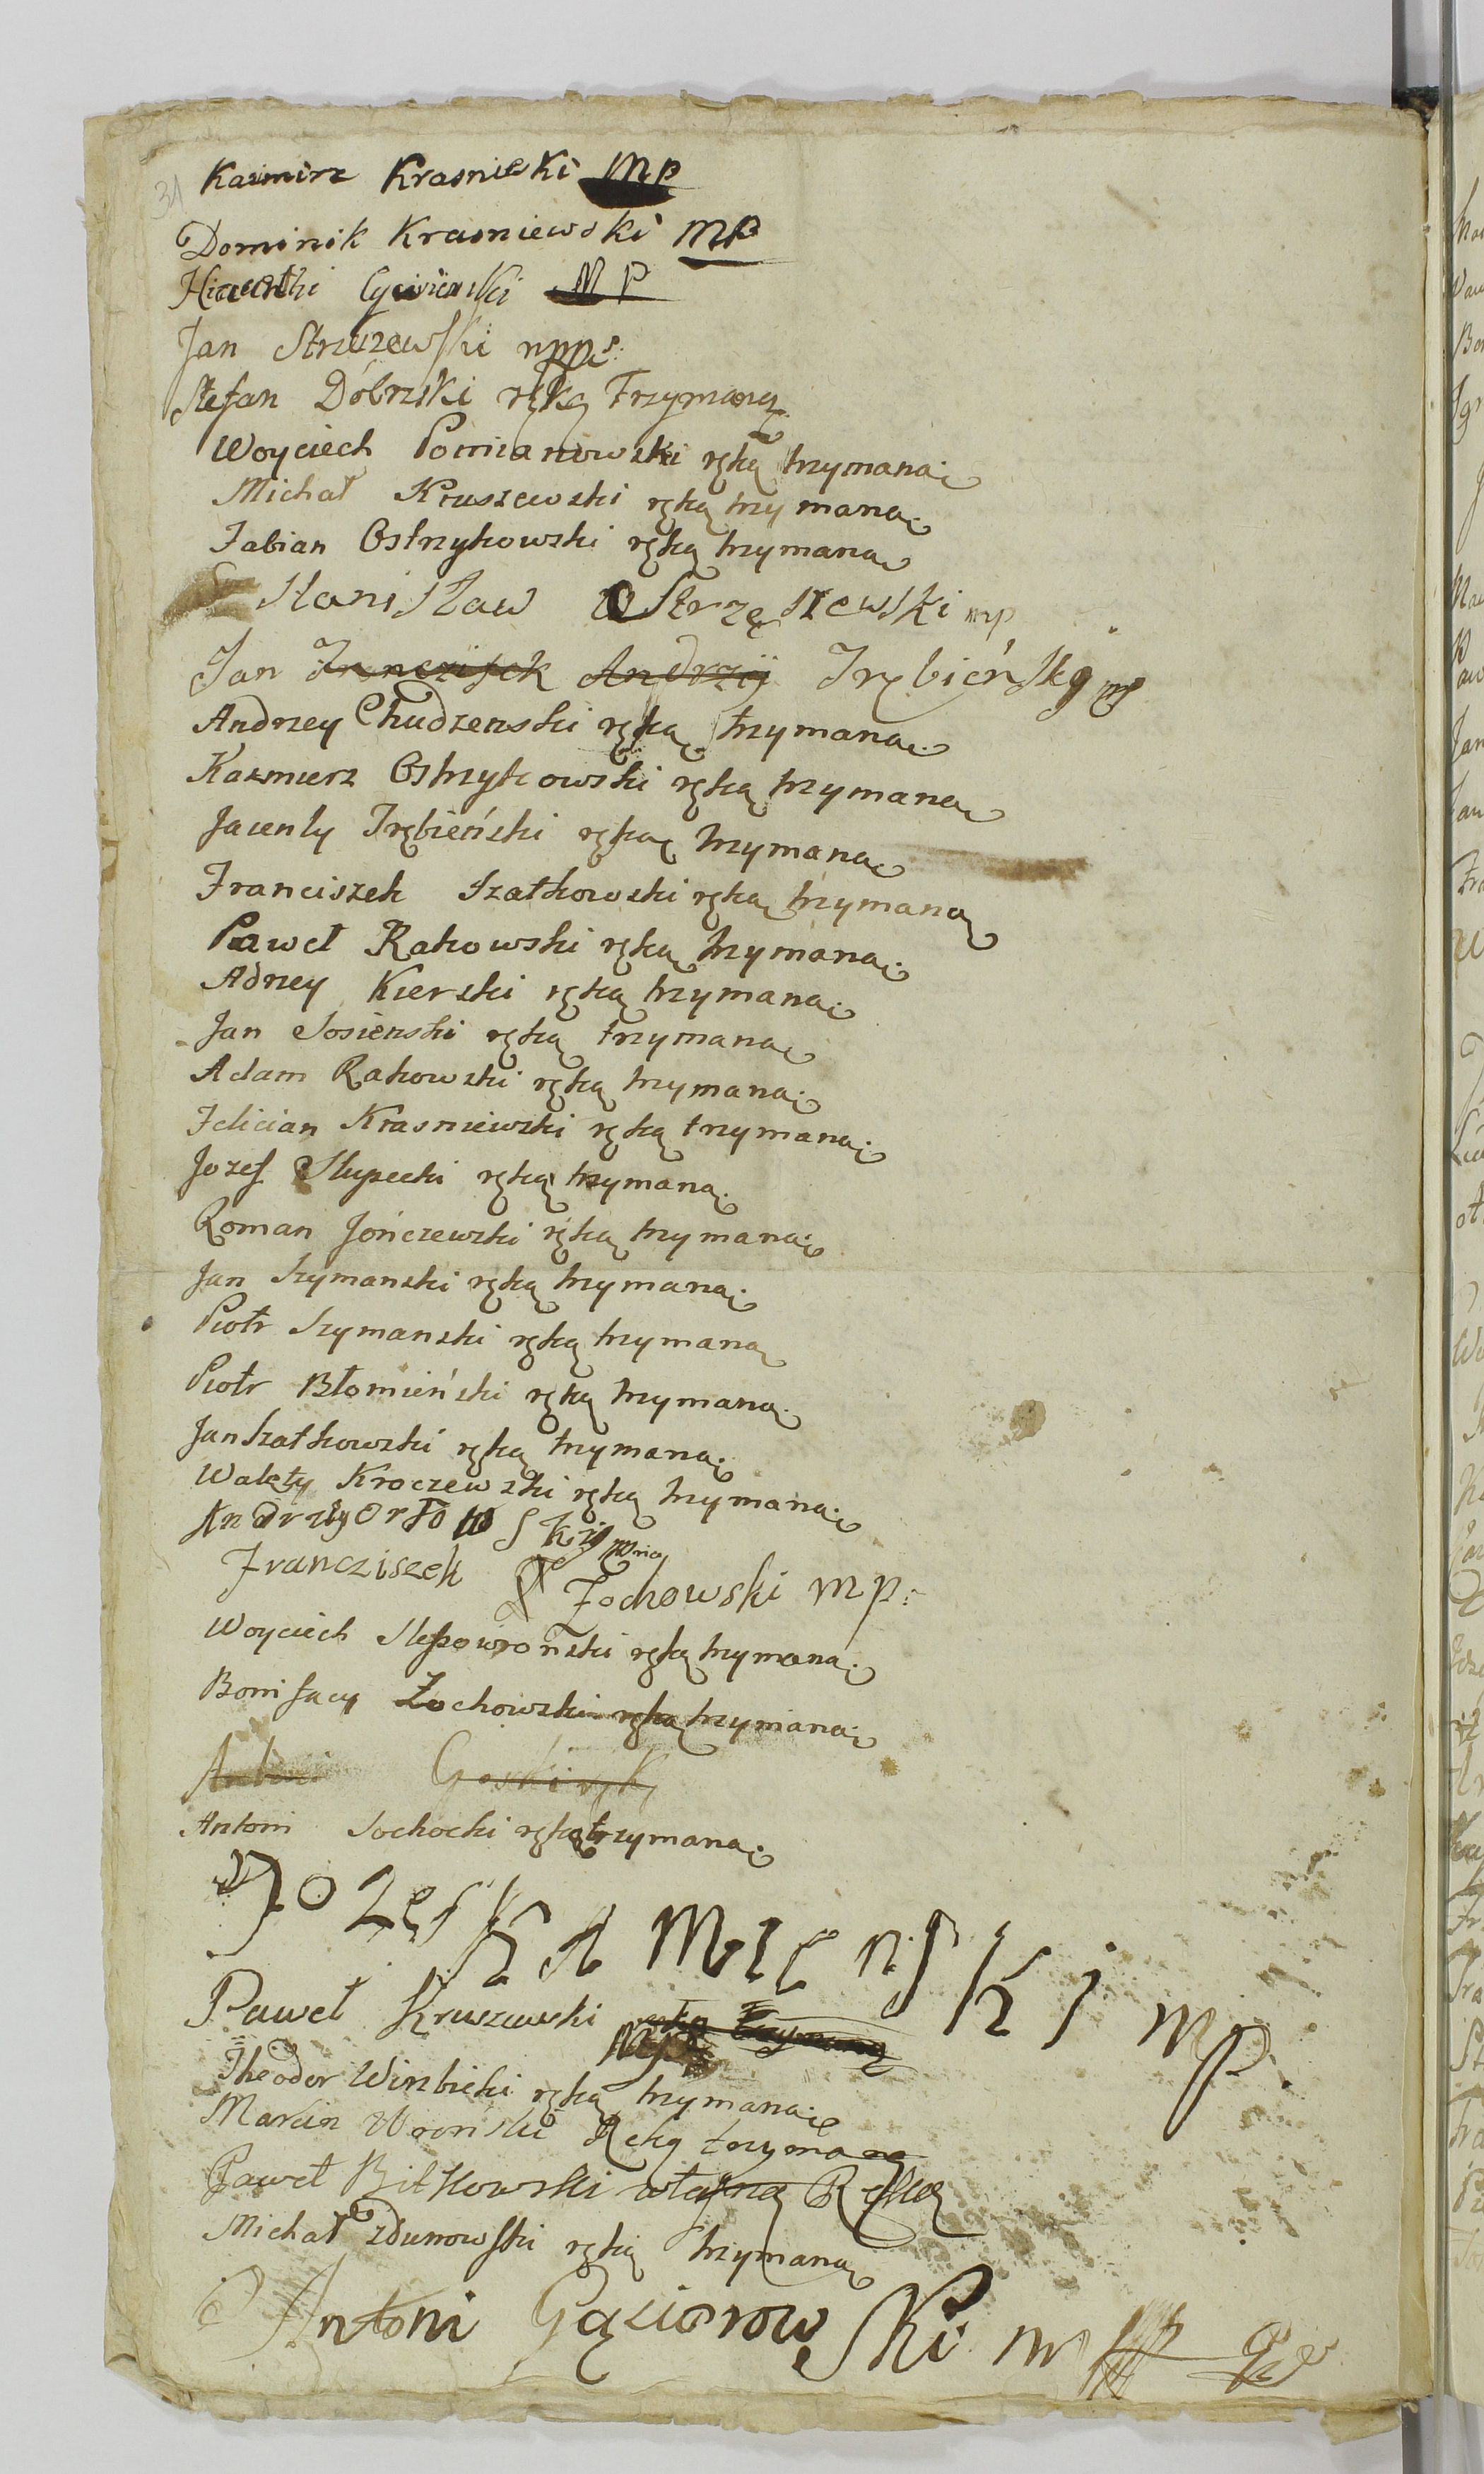 31
Kazmirz Krasniewski MP
Dominik Krasniewski MP
Hiacenthi Cywiński MP
Jan Strzuzewski mpp
Stefan Dóbrski ręką Trzymaną
Woyciech Pomianowski ręką trzymaną
Michał Kruszewski ręką trzymaną
Fabian Ostrzykowski ręką trzymaną
Stanisław OStrzęszewski mp
Jan Franczisek Andrzěj Trębieńskÿ mp
Andrzey Chudzenski ręką trzymaną
Kazmierz Ostrzykowski ręką trzymaną
Jacenty Trębieński ręką trzymaną
Franciszek Szatkowski ręką trzymaną
Paweł Rakowski ręką trzymaną
Adrzey Kierski ręką trzymaną
Jan Sosienski ręką trzymaną
Adam Rakowski ręką trzymaną
Felician Krasniewski ręką trzymaną
Jozef Słupecki ręką trzymaną
Roman Jończewski ręką trzymaną
Jan Szymanski ręką trzymaną
Piotr Szymanski ręką trzymaną
Piotr Błomieński ręką trzymaną
Jan Szatkowski ręką trzymaną
Walęty Kroczewski ręką trzymaną
Andrzÿ OrłowSki
Francziszek Zochowski mp:
Woyciech Slepowroński ręką trzymaną
Bonifacy Zochowski ręką trzymaną
Antoni
Antoni Sochocki ręką trzymaną
Jozef KAMIenSKi mp.
Paweł Kruszewski ręką trzymaną
Mp
Theodor Wirzbicki ręką trzymaną
Marcin Wroński Ręką trzymaną
Paweł Bitkowski własną Ręką
Michał Zdunowski ręką trzymaną
Antoni GąsiorowSki